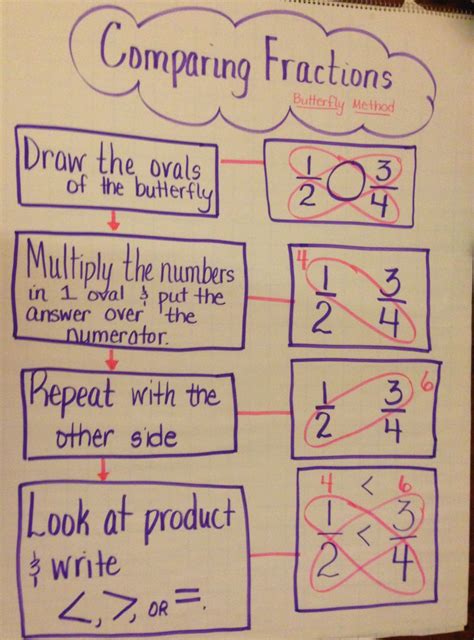 Comparing Fractions
Butterfly Method
Draw the ovals
of the butterfly
1 3
2 4
Multiply the numbers
in 1 oval & put the
answer over the
numerator.
4
1 3
2 4
Repeat with the
other side
6
1 3
2 4
Look at product
& write
<, >, OR =.
4 < 6
1 < 3
2 4